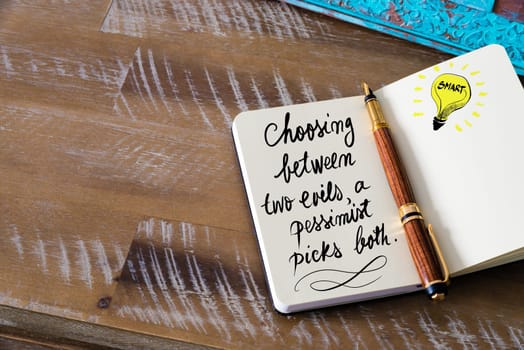 Choosing
between
two evils, a
pessimist
picks both.
SMART